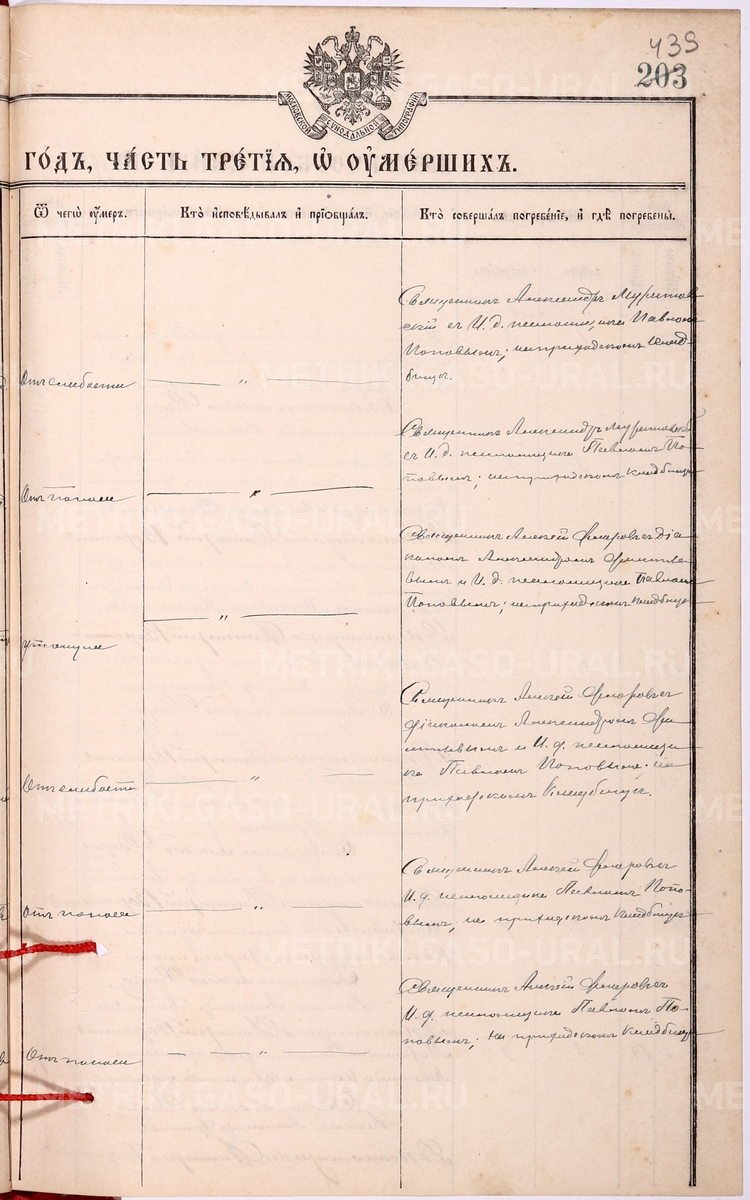 439
203
МОСКОВСКОЙ СѴНОДАЛЬНОЙ ТИПОГРАФІИ
ГО́ДЪ, ЧА́СТЬ ТРЕ́ТІѦ, Ѡ҆ ОУ҆МЕ́РШИХЪ.
Ѿ чегѡ̀ ѹ҆́меръ.
Кто̀ и҆сповѣ́дывалъ и҆ прїѡбща́лъ.
Кто̀ соверша́лъ погребе́нїе, и҆ гдѣ̀ погребены̀.
Священникъ Александръ
скій съ И. д. псаломщика Павломъ
Поповымъ; на приходскомъ клад-
бищѣ.
Отъ слабости
Священникъ Александръ
съ И. д. псаломщика Павломъ По-
повымъ; на приходскомъ кладбищѣ
Отъ поноса
Священникъ Алексій съ діа-
кономъ Александромъ
вымъ и И. д. псаломщика Павломъ
Поповымъ; на приходскомъ кладбищѣ
утонула
Священникъ Алексій съ
діакономъ Александромъ
и И. д. псаломщи-
ка Павломъ Поповымъ; на
приходскомъ кладбищѣ.
Отъ слабости
Священникъ Алексій съ
И. д. псаломщика Павломъ Попо-
вымъ, на приходскомъ кладбищѣ
Отъ поноса
Священникъ Алексій съ
И. д. псаломщика Павломъ По-
повымъ; на приходскомъ кладбищѣ
Отъ поноса
METRIKI.GASO-URAL.RU